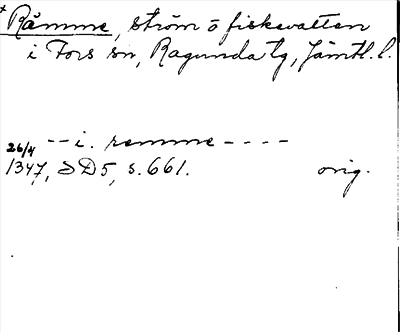 * Råmme, ström o fiskevatten
i Fors sn, Ragunda tg, Jämtl. l.
26/4 -- i. remme ----
1347, SD5, s. 661. orig.